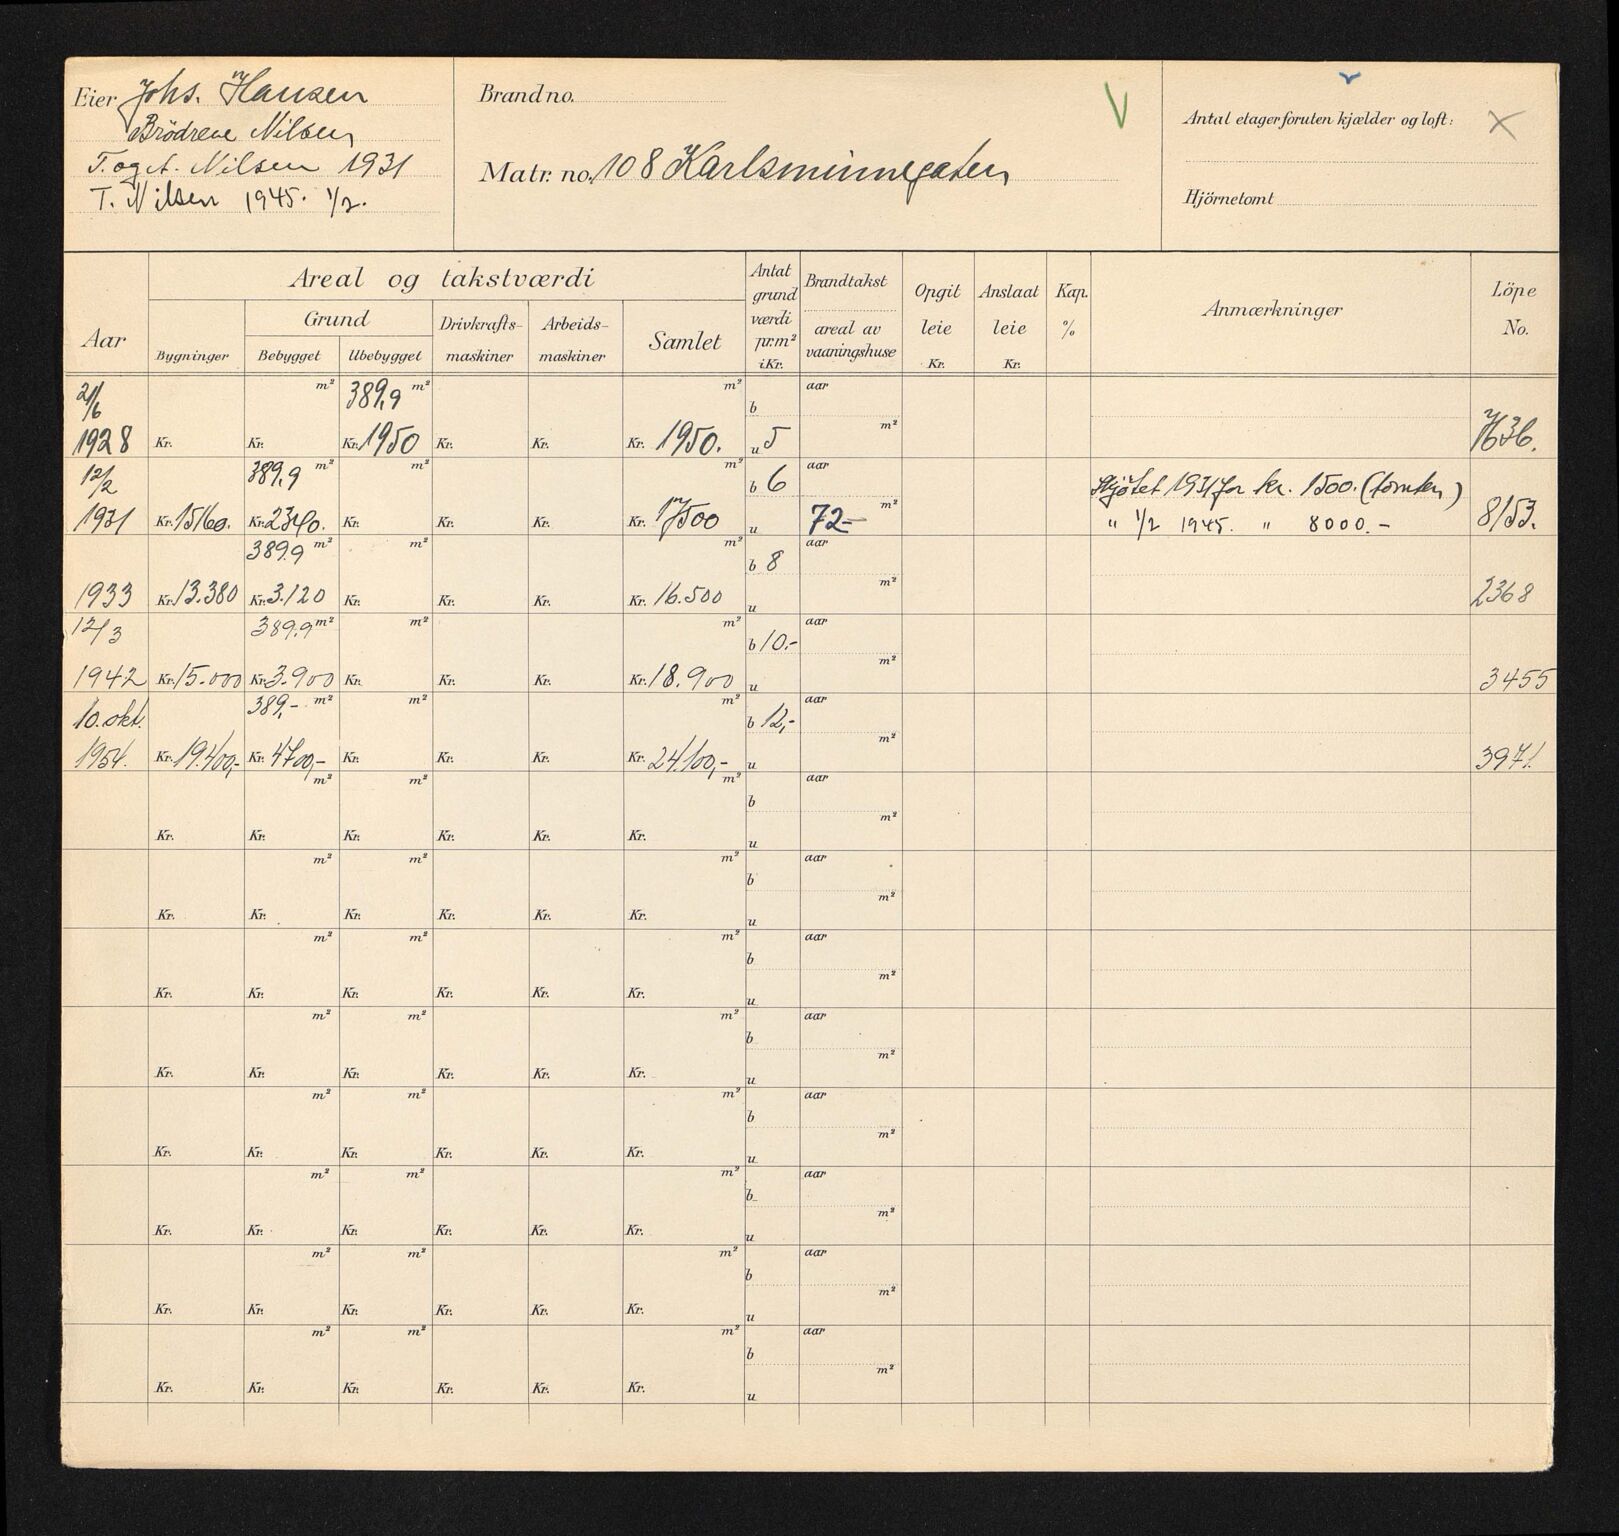 Eier Johs. Hansen
Brödrene Nilsen
T. og A. Nilsen 1931
T. Nilsen 1945. 1/2.
Brand no.
Matr. no. 108 Karlsminnegaten
V
Antal etager foruten kjælder og loft:
X
Hjörnetomt
Aar
Areal og takstværdi
Bygninger
Grund
Bebygget
Ubebygget
Drivkrafts-
maskiner
Arbeids-
maskiner
Samlet
Antat
grund
værdi
pr. m²
i Kr.
Brandtakst
areal av
vaaningshuse
Opgit
leie
Kr.
Anslaat
leie
Kr.
Kap.
%
Anmærkninger
Löpe
No.
21/6 m² 389,9 m² m² b aar
1928 Kr. Kr. Kr. 1950 Kr. Kr. Kr. 1950. u 5 m² 7636.
12/2 389,9 m² m² m² b 6 aar Skjötet 1931 for kr. 1500. (tomten)
1931 Kr. 15160. Kr. 2340. Kr. Kr. Kr. Kr. 17500 u 72- m² " 1/2 1945. " 8000.- 8153.
389.9 m² m² m² b 8 aar
1933 Kr. 13.380 Kr. 3.120 Kr. Kr. Kr. Kr. 16.500 u m² 2368
12/3 389.9 m² m² m² b 10.- aar
1942 Kr. 15.000 Kr. 3.900 Kr. Kr. Kr. Kr. 18.900 u m² 3455
10. okt. 389,- m² m² m² b 12,- aar
1954. Kr. 19.400,- Kr. 4700,- Kr. Kr. Kr. Kr. 24.100,- u m² 3971.
m² m² m² b aar
Kr. Kr. Kr. Kr. Kr. Kr. u m²
m² m² m² b aar
Kr. Kr. Kr. Kr. Kr. Kr. u m²
m² m² m² b aar
Kr. Kr. Kr. Kr. Kr. Kr. u m²
m² m² m² b aar
Kr. Kr. Kr. Kr. Kr. Kr. u m²
m² m² m² b aar
Kr. Kr. Kr. Kr. Kr. Kr. u m²
m² m² m² b aar
Kr. Kr. Kr. Kr. Kr. Kr. u m²
m² m² m² b aar
Kr. Kr. Kr. Kr. Kr. Kr. u m²
m² m² m² b aar
Kr. Kr. Kr. Kr. Kr. Kr. u m²